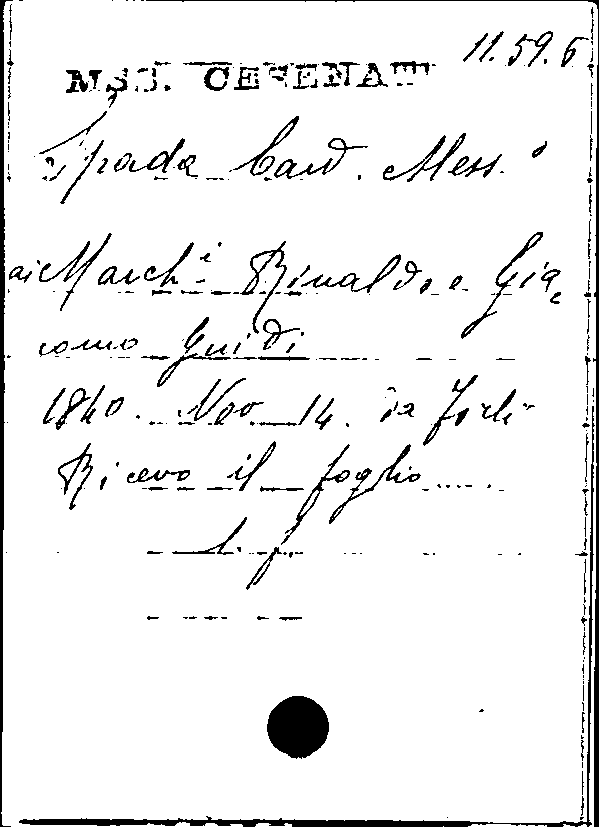 11.59.6
MSS. CESENATI
Spada Card. Aless.º
ai March.i Rinaldo e Gia
como Guidi
1840. Nov. 14. da Forlì
Ricevo il foglio .....
l. f.